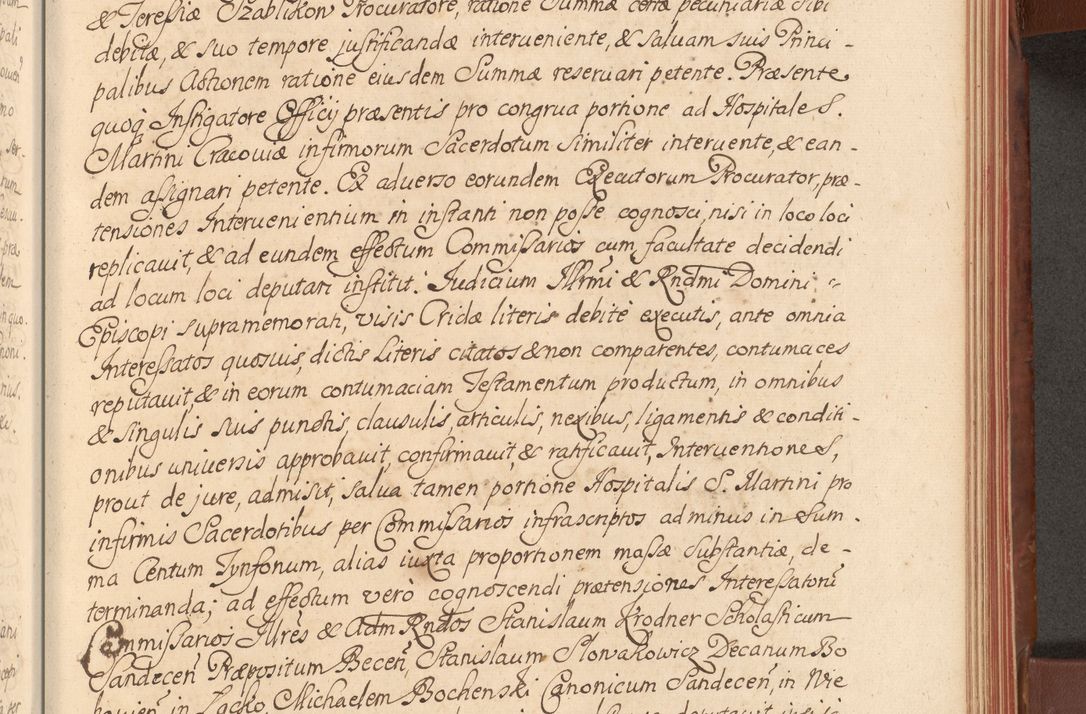 & Teressiæ Szablikon Procuratore, ratione Summæ certæ pecuniariæ sibi
debitæ, & suo tempore justificandæ interueniente, & saluam suis Princi-
palibus Actionem ratione eiusdem Summæ reseruari petente. Præsente
quoq Instigatore Officij præsentis pro congrua portione ad Hospitale S.
Martini Cracouiæ infirmorum Sacerdotum similiter interuente, & ean-
dem assignari petente. Ex aduerso eorundem Executorum Procurator, præ-
tensiones Interuenientium in instanti non posse cognosci, nisi in loco loci
replicauit, & ad eundem effectum Commissarios cum facultate decidendi
ad locum loci deputari institit. Judicium Illrmi & Rndmi Domini
Episcopi supramemorati, visis Cridæ literis debitè executis, ante omnia
Interessatos quosuis, dictis Literis citatos & non comparentes, contumaces
reputauit, & in eorum contumaciam Testamentum productum, in omnibus
& singulis suis punctis, clausulis, articulis, nexibus, ligamentis & conditi-
onibus uniuersis approbauit, confirmauit, & ratificauit, Interuentiones,
prout de jure, admisit, salua tamen portione Hospitalis S. Martini pro
infirmis Sacerdotibus per Commissarios infrascriptos ad minus in Sum-
ma Centum Tynfonum, alias iuxta proportionem massæ substantiæ, de-
terminanda; ad effectum verò cognoscendi prætensiones Interessatorū
Commissarios Illres & Adm Rndos Stanislaum Krodner Scholasticum
Sandecen Præpositum Becen, Stanislaum Slowakowicz Decanum Bo
in Lącko Michaelem Bochenski Canonicum Sandecen, in Wie